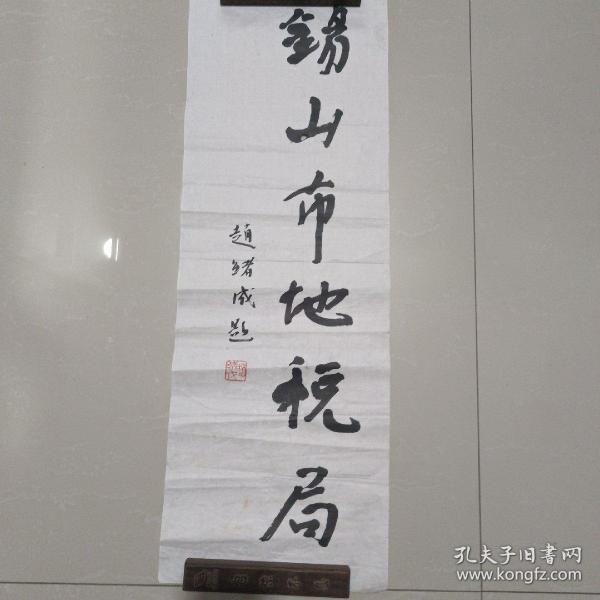 锡山市地税局
趙緒成題
孔夫子旧書网
www.kongfz.com